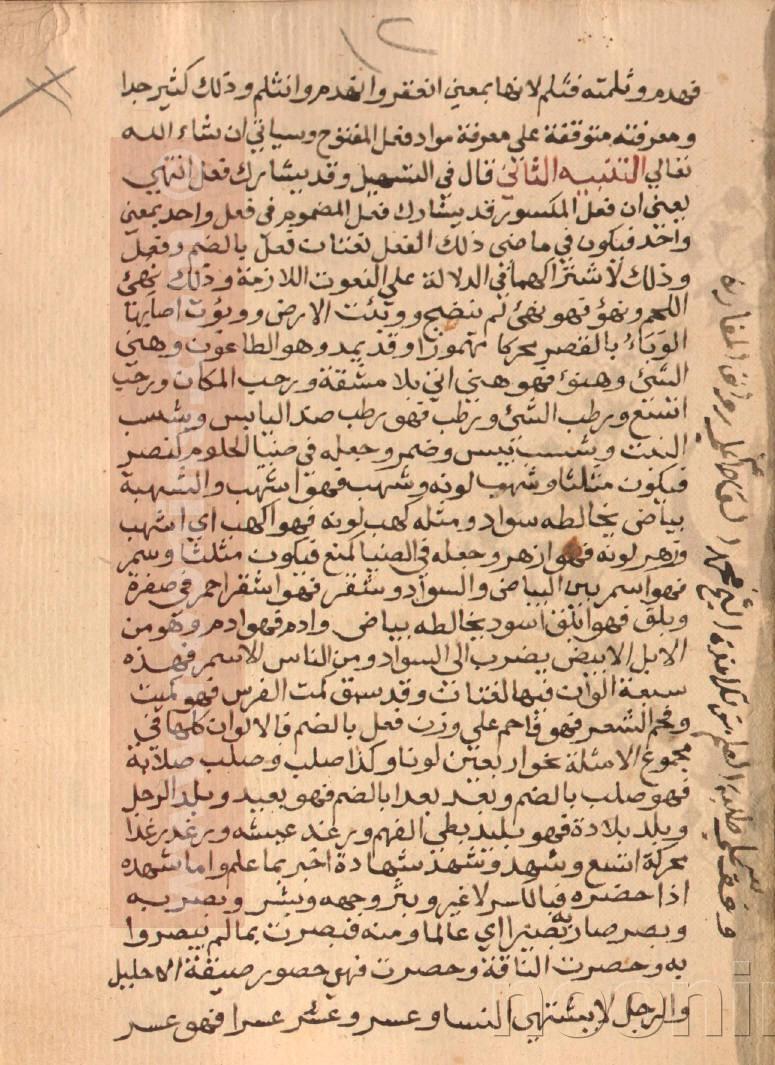 فهدم وثلمته فثلم لانها بمعني انعقر وانهدم وانثلم وذلك كثير جدا
ومعرفته متوقفة علي معرفة مواد فعل المفتوح وسياتي ان شاء الله
تعالي التنبيه الثاني قال في التسهيل وقد يشارك فعل انتهي
يعني ان فعل المكسور قد يشارك فعل المضموم في فعل واحد بمعني
واحد فيكون في ماضي ذلك الفعل لغتان فعل بالضم وفعل
وذلك لاشتراكهما في الدلالة علي النعوت اللازمة وذلك نهئ
اللحم ونهؤ فهو نهئ لم ينضج ووبئت الارض ووبؤت اصابها
الوَبَاءُ بالقصر محركا مهموزا وقد يمد وهو الطاعون وهنئ
الشئ وهنؤ فهو هنئ اتي بلا مشقة ورحب المكان ورحب
اتسع ورطب الشئ ورطب فهو رطب ضد اليابس وشسب
وشسب يبس وضمر وجعله في ضيا الحلوم كنصر
فيكون مثلثا وشهب لونه وشهب فهو اشهب والشهبة
بياض يخالطه سواد ومثله كهب لونه فهو اكهب اي اشهب
وزهر لونه فهو ازهر وجعله في الضيا كمنع فيكون مثلثا وسمر
فهو اسمر بين البياض والسواد وشقر فهو اشقر احمر في صفرة
وبلق فهو ابلق اسود يخالطه بياض وادم فهو ادم وهو من
الابل الابيض يضرب الي السواد ومن الناس للاسمر فهذه
سبعة الوان فيها لغتان وقد سبق كمت الفرس فهو كميت
وفحم الشعر فهو فاحم علي وزن فعل بالضم فالالوان كلها في
مجموع الامثلة نحو اربعين لونا وكذا صلب وصلب صلابة
فهو صلب بالضم وبعد بعدا بالضم فهو بعيد وبلد الرجل
وبلد بلادة فهو بليد بطي الفهم ورغد عيشه ورغد رغدا
محركة اتسع وشهد وشهد شهادة اخبر بما علم واما شهده
اذا حضره فبالكسر لا غير وبشر وجهه وبشر وبصر به
وبصر صار به بصيرا اي عالما ومنه فبصرت بما لم يبصروا
به وحصرت الناقة وحصرت فهي حصور ضيقة الاحليل
والرجل لا يشتهي النسا وعسر وعسر عسرا فهو عسر
noonin